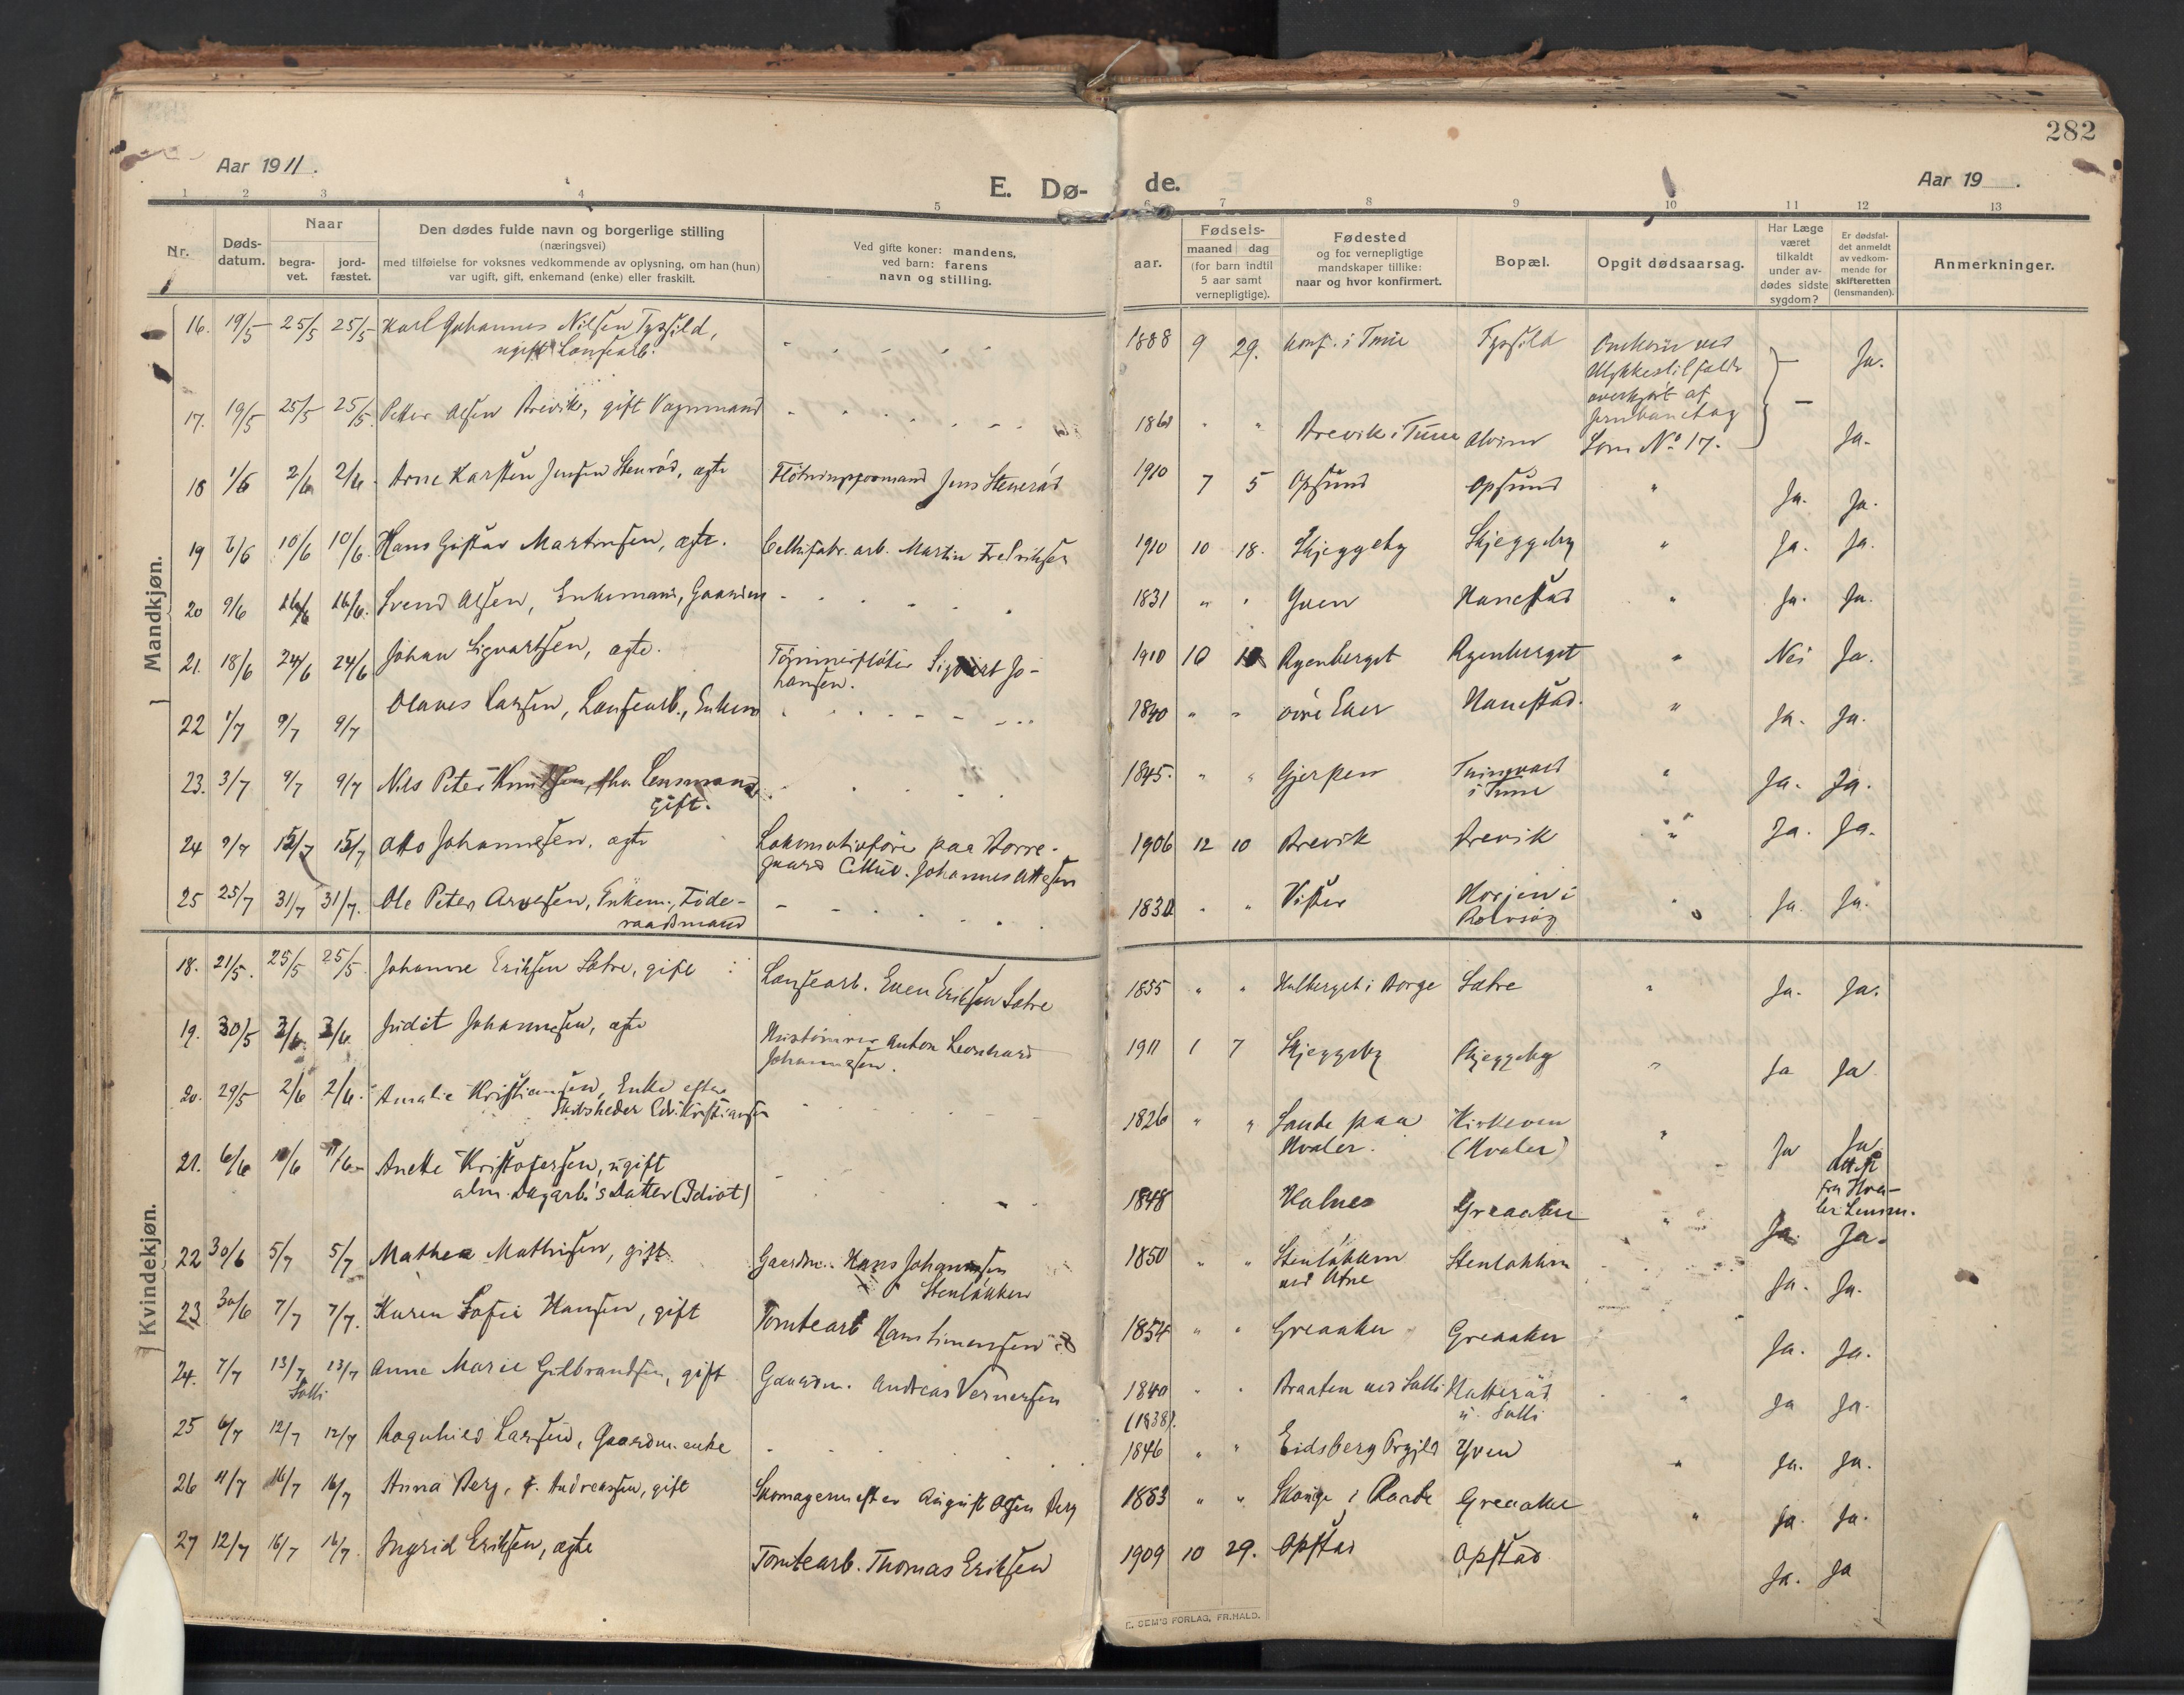 282
Aar 1911.
E. Dø-
de.
Aar 19 .
1 2 3 4 5 6 7 8 9 10 11 12 13
Nr.
Døds-
datum.
Naar
begra-
vet.
jord-
fæstet.
Den dødes fulde navn og borgerlige stilling
(næringsvei)
med tilføielse for voksnes vedkommende av oplysning, om han (hun)
var ugift, gift, enkemand (enke) eller fraskilt.
Ved gifte koner: mandens,
ved barn: farens
navn og stilling.
Fødsels-
aar.
maaned dag
(for barn indtil
5 aar samt
vernepligtige).
Fødested
og for vernepligtige
mandskaper tillike:
naar og hvor konfirmert.
Bopæl.
Opgit dødsaarsag.
Har Læge
været
tilkaldt
under av-
dødes sidste
sygdom?
Er dødsfal-
det anmeldt
av vedkom-
mende for
skifteretten
(lensmanden).
Anmerkninger.
Mandkjøn.
16. 19/5 25/5 25/5 Karl Johannes Nilsen
ugift 1888 9 29. konf. i Tune Ja.
ulykkestilfælde
overkjørt af
jernbanetog
17. 19/5 25/5 25/5 Petter Olsen Brevik, gift Vognmand Brevik i Tune Som No 17. Ja.
18 1/6 2/6 2/6 Arne Karsten Jensen Stenrød, ægte Fløtningsformand Jens Stenerød 1910 7 5 Opsund Opsund " Ja. Ja.
19 6/6 10/6 10/6 Hans Gustav Martinsen, ægte. Cellulfabr. arb. Martin Fredriksen 1910 10 18. Skjeggeby Skjeggeby " Ja. Ja.
20 9/6 16/6 16/6. Svend Olsen, Enkemand, 1831 " " Yven Hanestad " Ja. Ja.
21. 18/6 24/6 24/6 Johan Sigvartsen, ægte. Tømmerfløter Sigvart Jo-
hansen. 1910 10 Ryenberget Ryenberget " Nei Ja.
22 1/7 9/7 9/7 Olaves Larsen, Løusearb., Enkem 1840 " " øvre Eker Hanestad. " Ja. Ja.
23. 3/7 9/7 9/7 Nils Peter Knudsen, fhv. Lensmand,
gift. 1845. " " Gjerpen Tunevald
i Tune " Ja. Ja.
24 9/7 15/7 15/7 Otto Johannesen, ægte Lokomotivfører paa Borre-
gaard Cellul. Johannes Ottesen 1906 12 10 Brevik Brevik " Ja. Ja.
25 25/7 31/7 31/7. Ole Peter Arvesen, Enkem., Føde-
raadsmand " " Vister Horjen i
Rolvsøy " Ja. Ja.
Kvindekjøn.
18. 21/5. 25/5 25/5. Johanne Eriksen Sætre, gift Løusearb. Even Eriksen Sætre 1855 " " Kulberget i Borge Sætre " Ja. Ja.
19. 30/5 2/6. 2/6. Judit Johannesen, ægte Hustømrer Anton Leonhard
Johannesen. 1911 1 7 Skjeggeby Skjeggeby " Ja Ja
20. 29/5 2/6 2/6. Amalie Kristiansen, Enke efter
Skibsreder Edv. Kristiansen 1826 " " Sande paa
Hvaler. Kirkeøen
(Hvaler) " Ja Ja
Att. fl
fra Hva-
ler Lensm.
21. 6/6 11/6 11/6 Anette Kristofersen, ugift
alm. Dagarb's Datter (Idiot) 1848 Kalnes Greaaker " Ja. Ja.
22 30/6 5/7 5/7 Mathea Mathisen, gift. Gaardm. Hans Johannesen
Stenløkken 1850 " " Stenløkken
ved Utne Stenløkken Ja. Ja.
23 30/6 7/7 7/7. Karen Sofie Hansen, gift Tomtearb Hans Simensen 1854 " " Greaaker Greaaker Ja. Ja.
24. 7/7 13/7 13/7 Anne Marie Gulbrandsen, gift Gaardm. Andreas Vernersen 1840 " " Braaten ved Solli Hatterød
Solli
u. Solli " Ja Ja.
(1838).
25 6/7 12/7 12/7 Ragnhild Larsen, Gaardm. enke 1846 " " Eidsberg Prgjld Yven " Ja. Ja.
26 11/7 16/7 16/7 Anna Berg, f. Andreassen, gift Skomagermester August Olsen Berg 1883 " " i Raade Greaaker " Ja. Ja.
27 12/7 16/7 16/7. Ingrid Eriksen, ægte Tomtearb. Thomas Eriksen 1909 10 29. Opstad Opstad Ja. Ja
E. SEM'S FORLAG, FR.HALD.